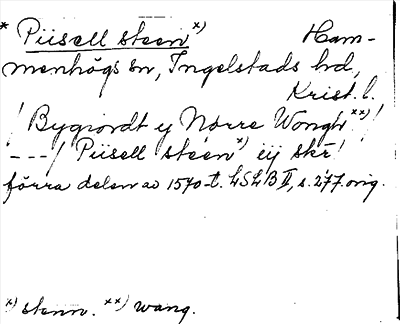 * Piisell steen *) Ham-
menhögs sn, Ingelstads hd,
Krist. l.
/ Bygiordt y Nørre Wongh **) /
--- / Piisell steen *) eij skr /
förra delen av 1570-t. LSLB II, s. 277. orig.
*) stenn. **) wang.